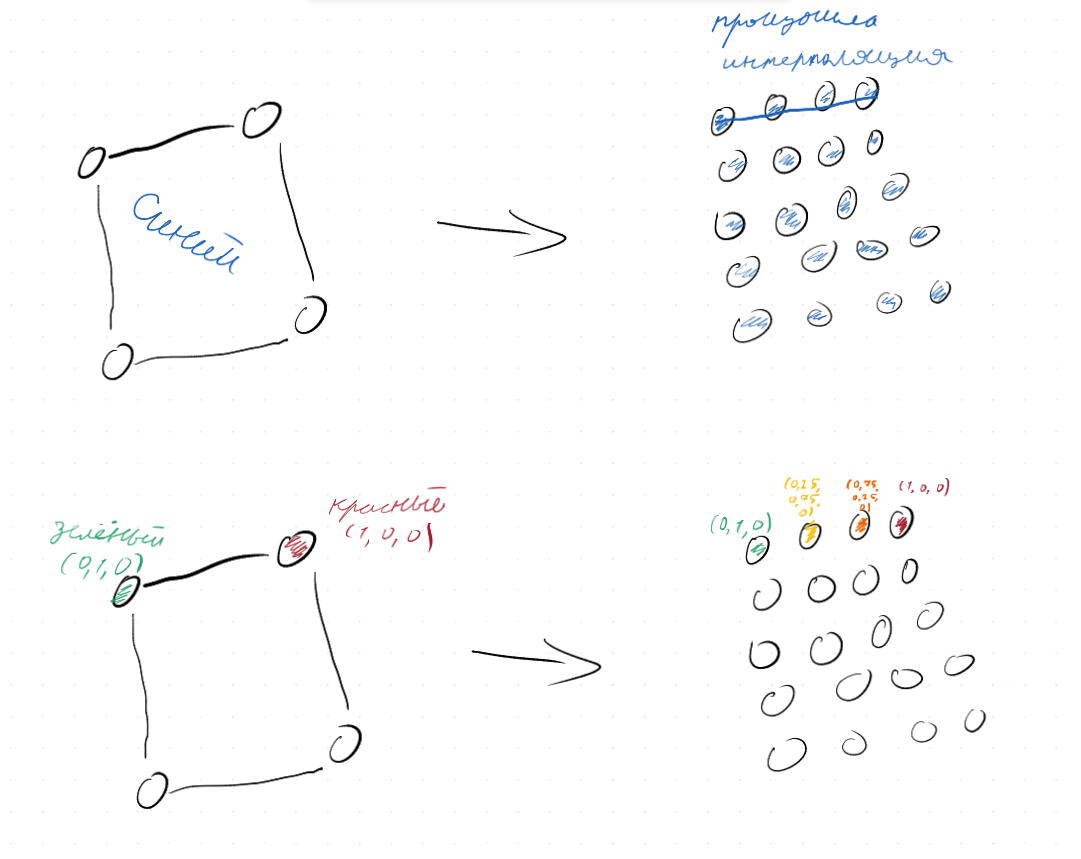 произошла
интерполяция
синий
зелёный
(0,1,0)
красный
(1,0,0)
(0,1,0)
(0,25,
0,75,
0)
(0,75,
0,25,
0)
(1,0,0)